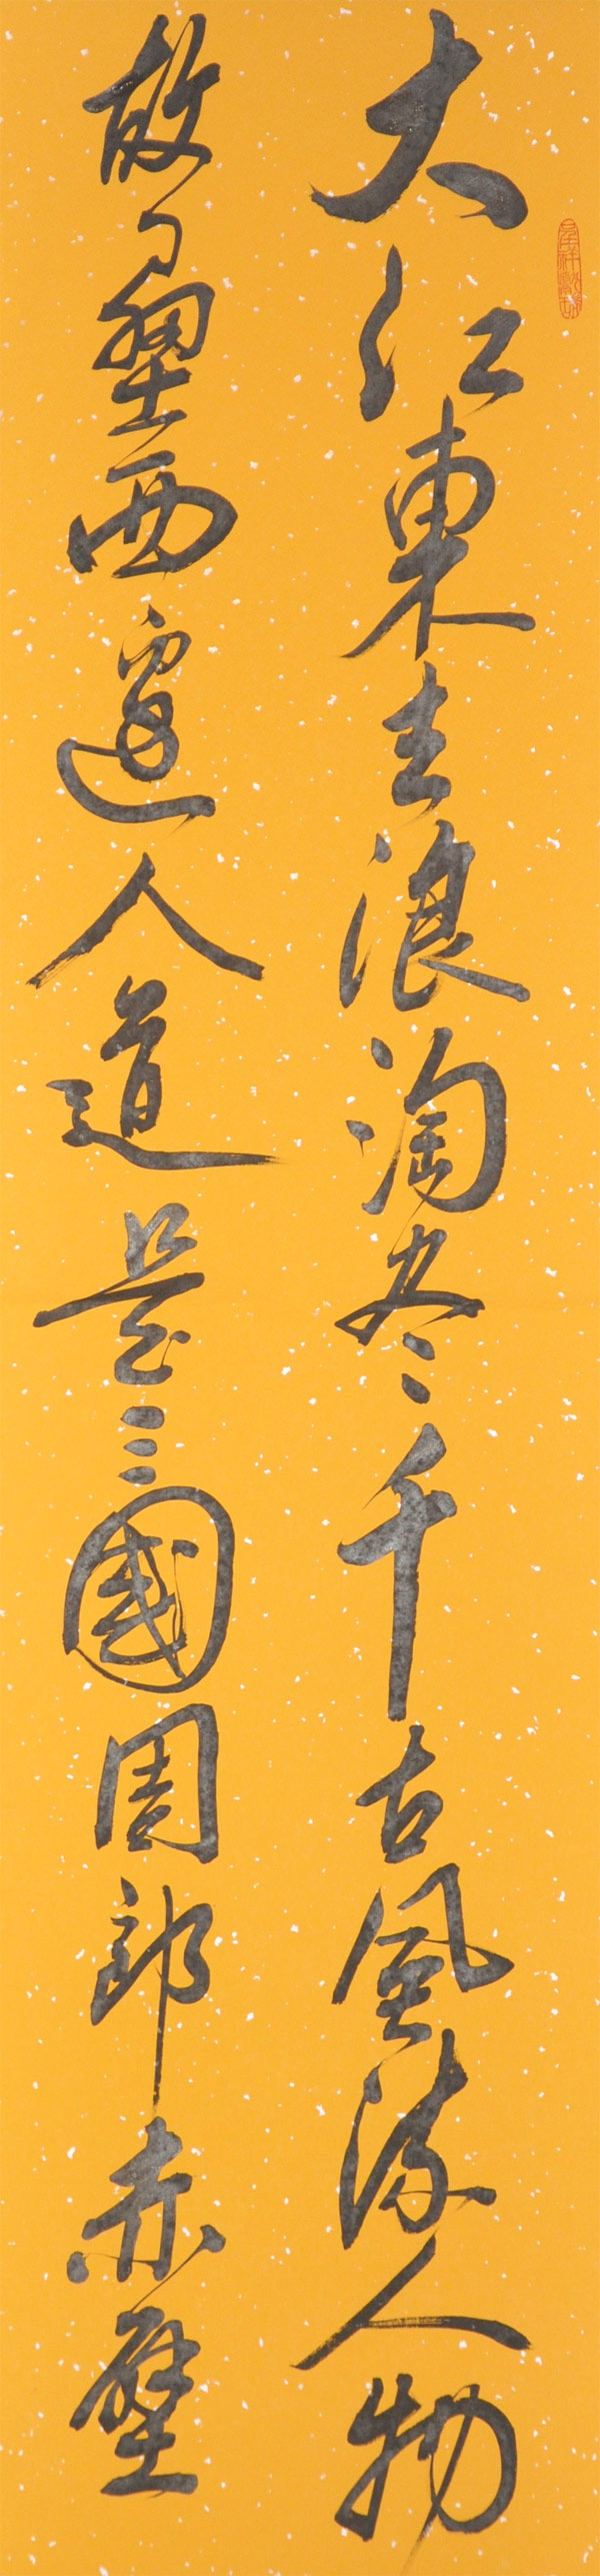 大江東去浪淘尽千古風流人物
故壘西邊人道是三國周郎赤壁